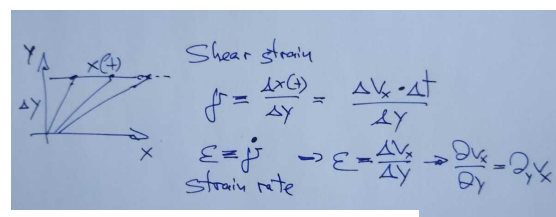 Y
x(t)
ΔY
X
Shear strain
γ ≡ Δx(t)/ΔY = ΔVx·Δt/ΔY
Ɛ ≡ γ̇ → Ɛ = ΔVx/ΔY → ∂Vx/∂Y = ∂yVx
strain rate